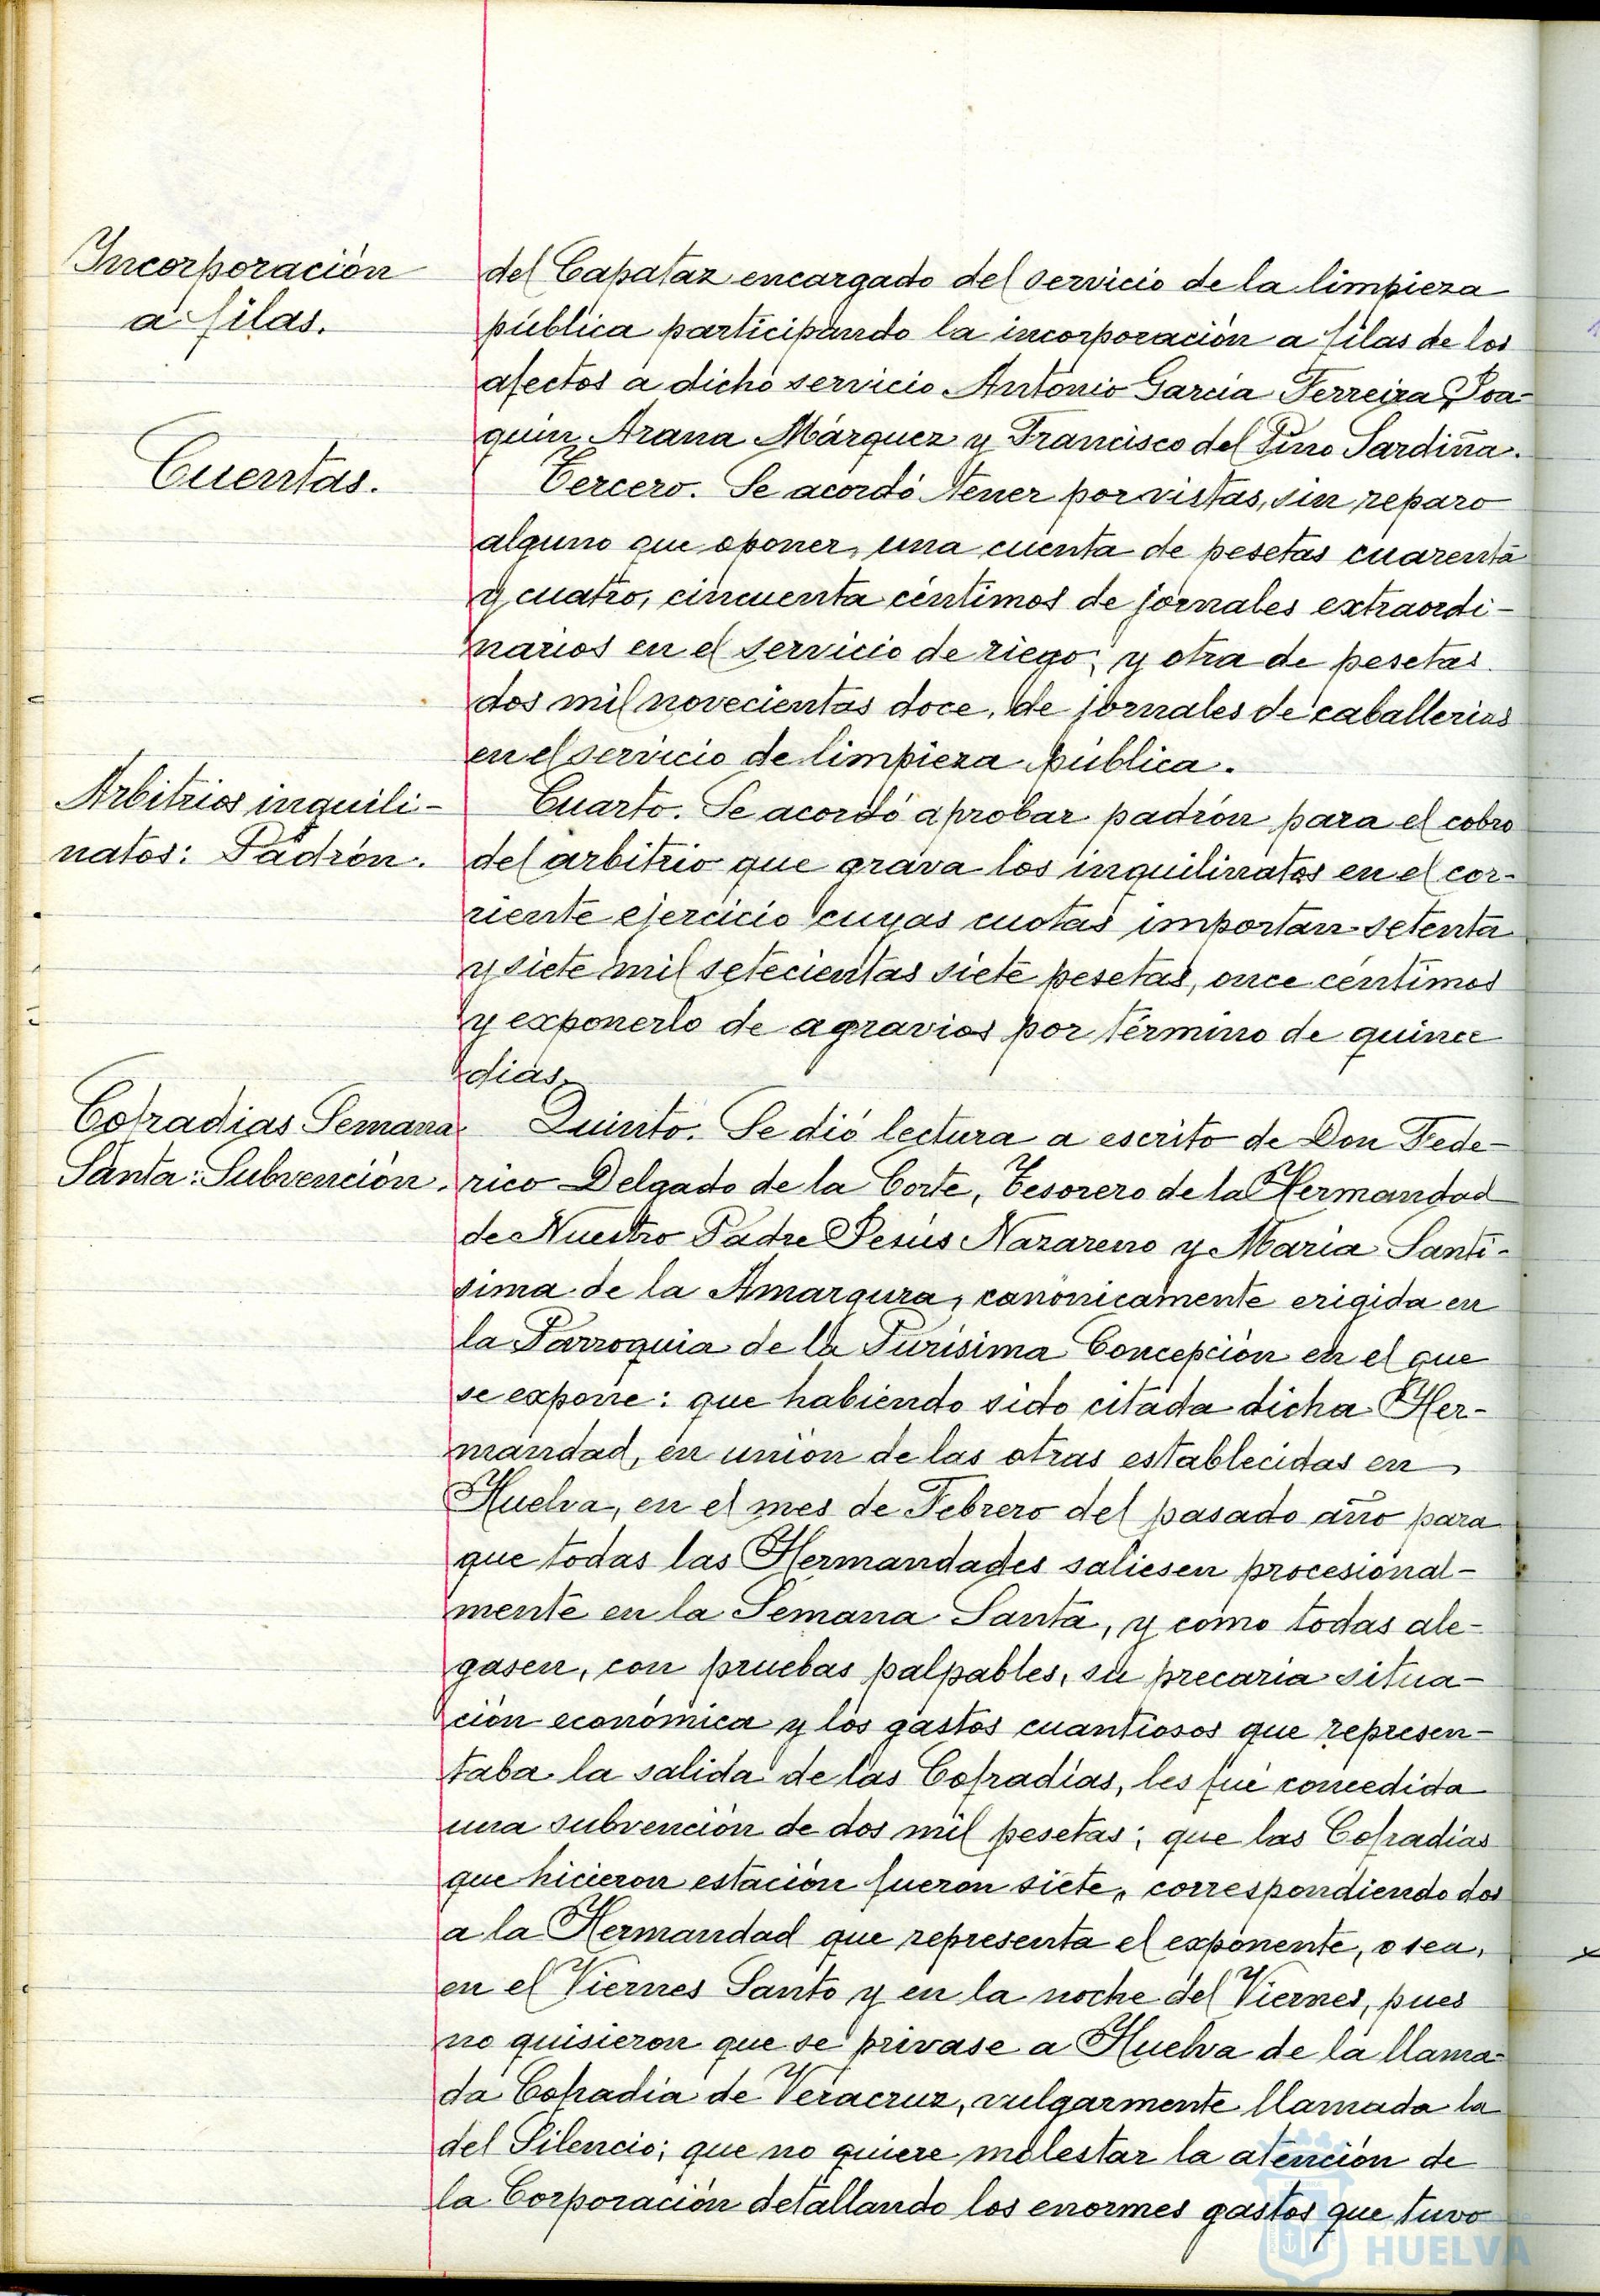 Incorporación
a filas.
del Capataz encargado del servicio de la limpieza
pública participando la incorporación a filas de los
afectos a dicho servicio Antonio García Ferreira Joa-
quin Arana Márquez y Francisco del Pino Sardiña.
Cuentas.
Tercero. Se acordó tener por vistas, sin reparo
alguno que oponer, una cuenta de pesetas cuarenta
y cuatro, cincuenta céntimos de jornales extraordi-
narios en el servicio de riego; y otra de pesetas
dos mil novecientas doce, de jornales de caballerias
en el servicio de limpieza pública.
Arbitrios inquili-
natos: Padrón.
Cuarto. Se acordó aprobar padrón para el cobro
del arbitrio que grava los inquilinatos en el cor-
riente ejercicio cuyas cuotas importan setenta
y siete mil setecientas siete pesetas, once céntimos
y exponerlo de agravios por término de quince
dias.
Cofradias Semana
Santa: Subvención.
Quinto. Se dió lectura a escrito de Don Fede-
rico Delgado de la Corte, Tesorero de la Hermandad
de Nuestro Padre Jesús Nazareno y Maria Santí-
sima de la Amargura, canónicamente erigida en
la Parroquia de la Purísima Concepción en el que
se expone: que habiendo sido citada dicha Her-
mandad, en unión de las otras establecidas en
Huelva, en el mes de Febrero del pasado año para
que todas las Hermandades saliesen procesional-
mente en la Semana Santa, y como todas ale-
gasen, con pruebas palpables, su precaria situa-
ción económica y los gastos cuantiosos que represen-
taba la salida de las Cofradías, les fué concedida
una subvención de dos mil pesetas; que las Cofradías
que hicieron estación fueron siete, correspondiendo dos
a la Hermandad que representa el exponente, o sea,
en el Viernes Santo y en la noche del Viernes, pues
no quisieron que se privase a Huelva de la llama-
da Cofradía de Veracruz, vulgarmente llamada la
del Silencio; que no quiere molestar la atención de
la Corporación detallando los enormes gastos que tuvo
HUELVA